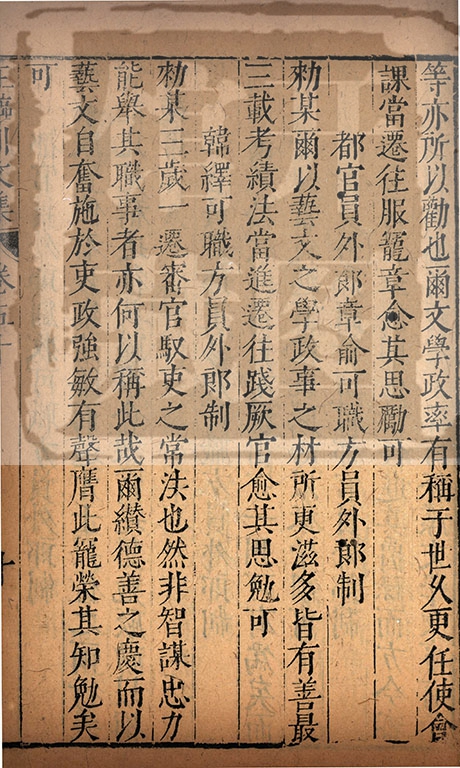 等亦所以勸也爾文學政率有稱于世久更任使會
課當遷往服寵章念其思勵可
都官員外郎章俞可職方員外郎制
勑某爾以藝文之學政事之材所更滋多皆有善最
三載考績法當進遷往踐厥官愈其思勉可
韓繹可職方員外郎制
勑某三歲一遷審官馭吏之常法也然非智謀忠力
能舉其職事者亦何以稱此哉爾纘德善之慶而以
藝文自奮施於吏政強敏有聲膺此寵榮其知勉矣
可
王臨川文集
卷五十
十